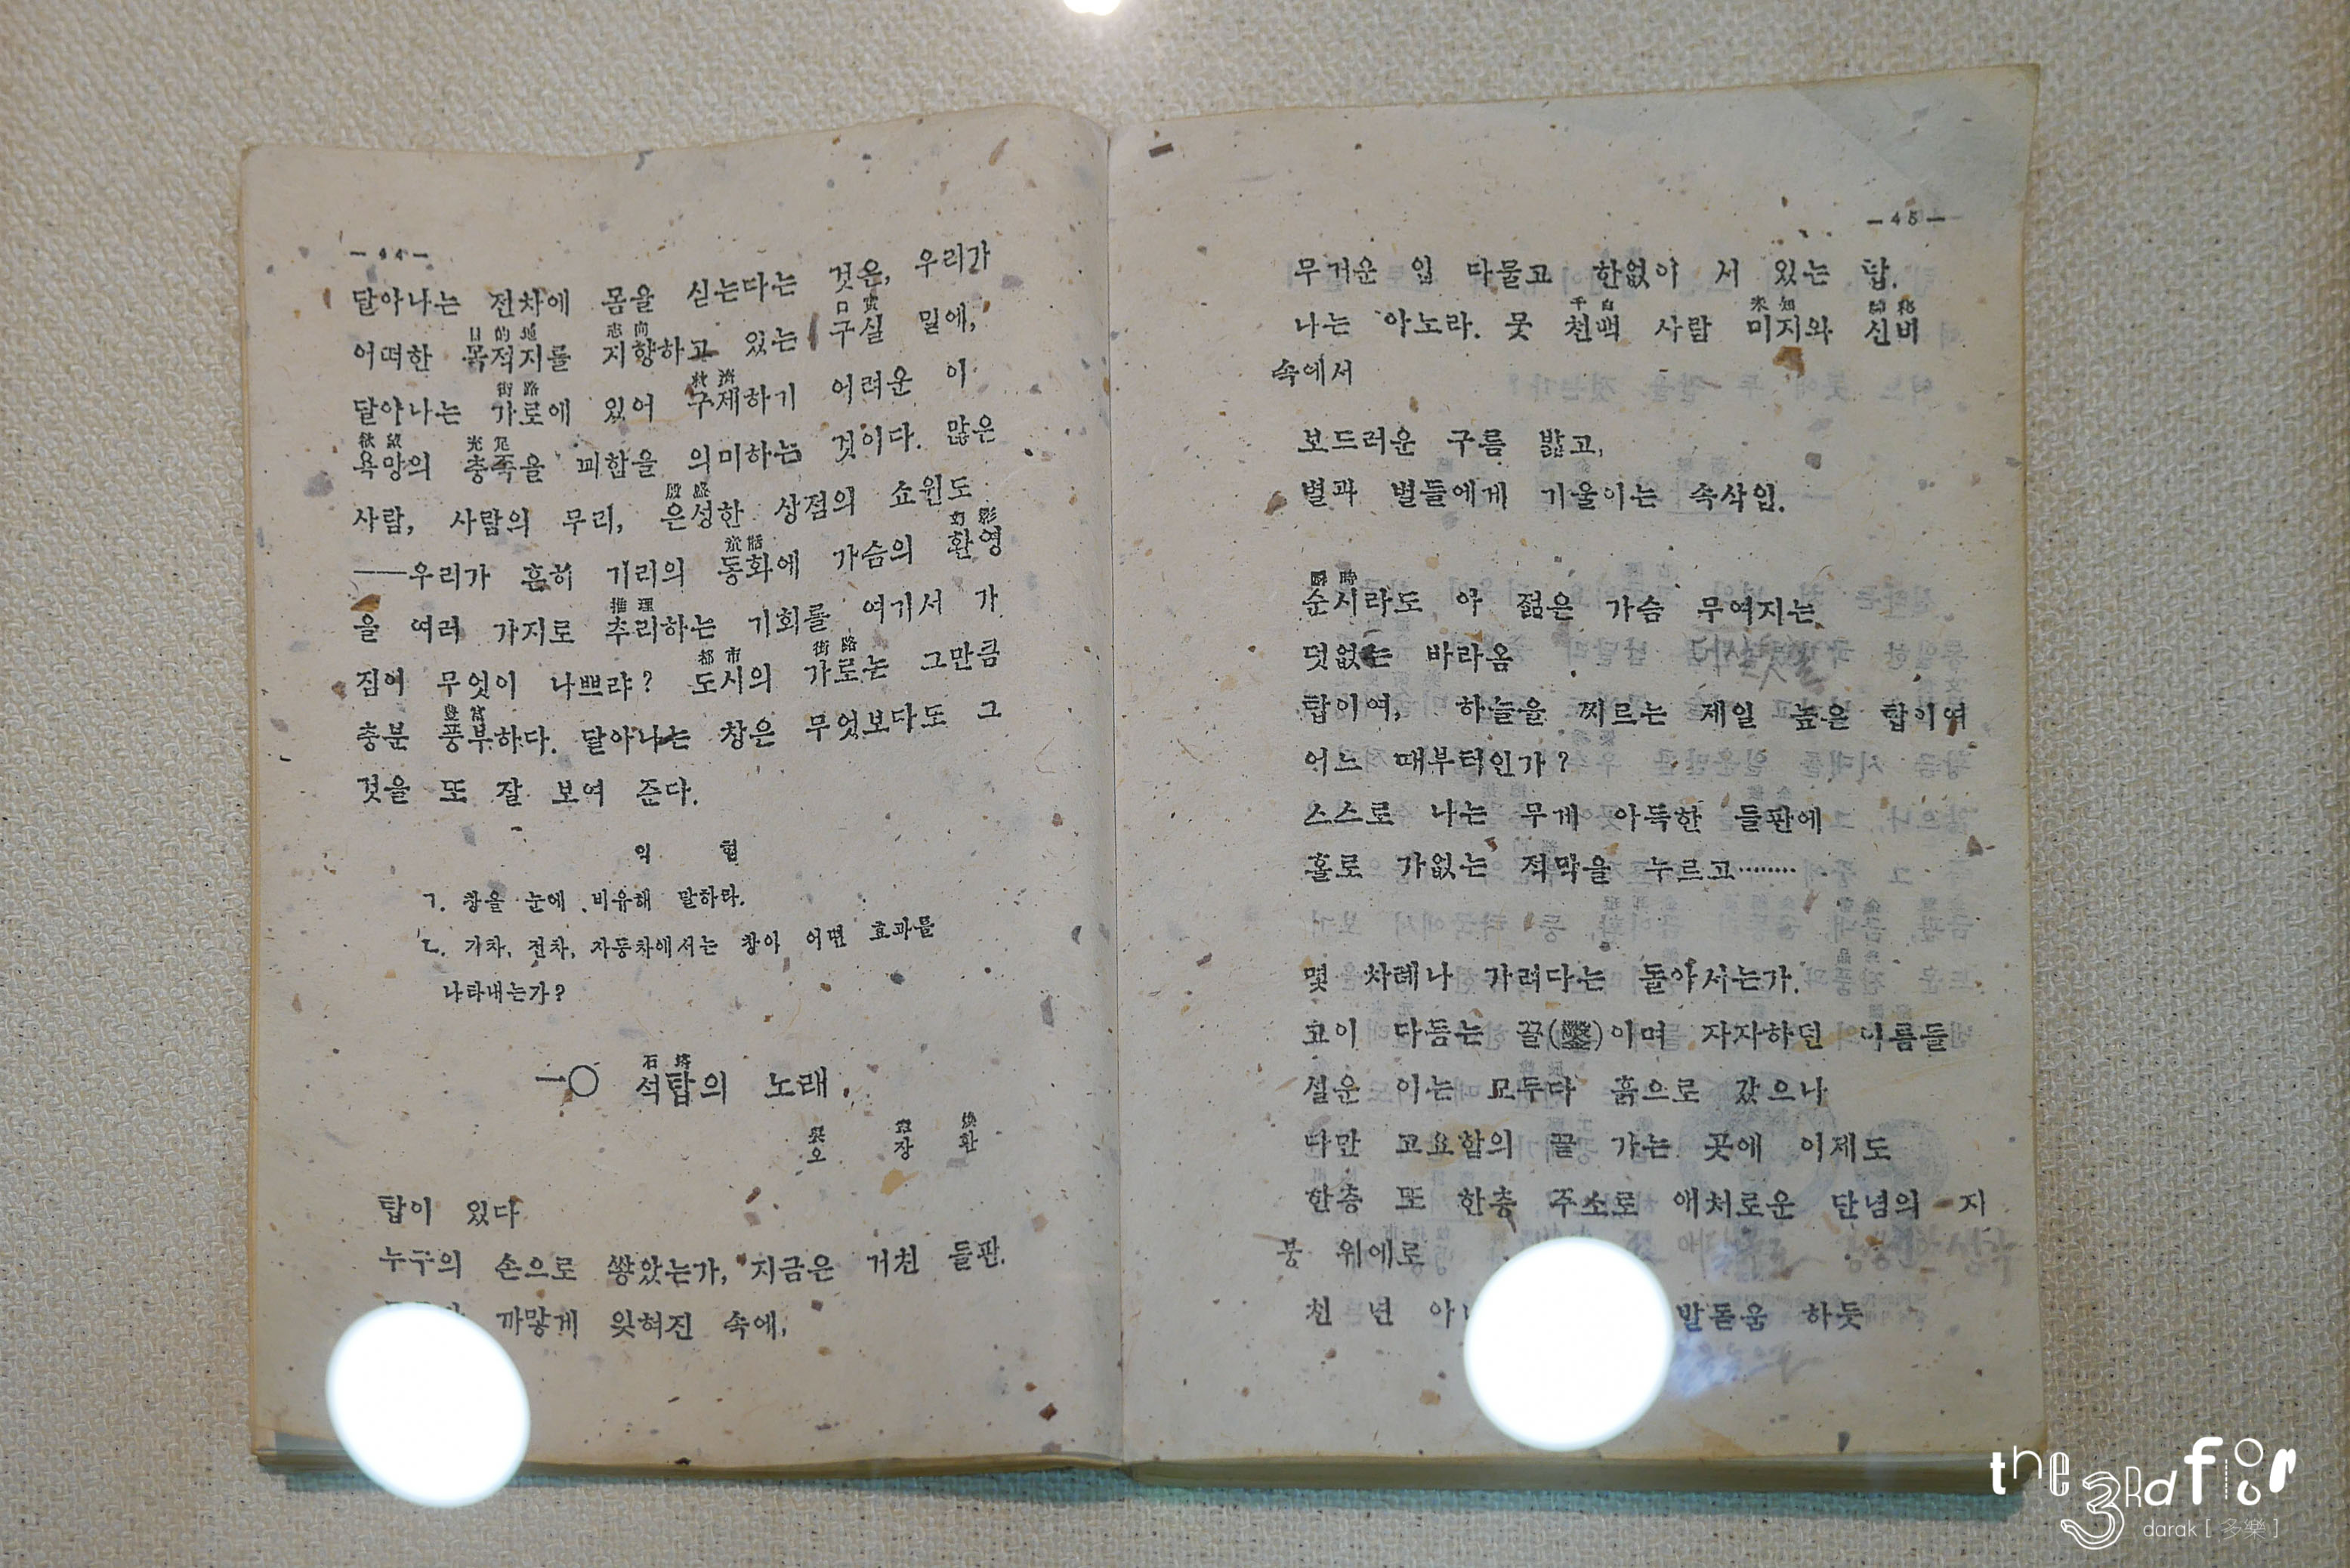 — 44 —
달아나는 전차에 몸을 싣는다는 것은, 우리가
어떠한 목적지를 지향하고 있는 구실 밑에,
달아나는 가로에 있어 구제하기 어려운 이
욕망의 충족을 꾀함을 의미하는 것이다. 많은
사람, 사람의 무리, 은성한 상점의 쇼윈도
──우리가 흔히 기리의 동화에 가슴의 환영
을 여러 가지로 추리하는 기회를 여기서 가
짐이 무엇이 나쁘랴? 도시의 가로는 그만큼
충분 풍부하다. 달아나는 창은 무엇보다도 그
것을 또 잘 보여 준다.
익 힘
ㄱ. 창을 눈에 비유해 말하라.
ㄴ. 기차, 전차, 자동차에서는 창이 어떤 효과를
나타내는가?
石塔
一〇 석탑의 노래
吳 章 煥
오 장 환
탑이 있다
누구의 손으로 쌓았는가, 지금은 거친 들판
까맣게 잊혀진 속에,
— 45 —
무거운 입 다물고 한없이 서 있는 탑.
千白 未知 神秘
나는 아노라. 뭇 천백 사람 미지와 신비
속에서
보드러운 구름 밟고,
별과 별들에게 기울이는 속삭임.
瞬時
순시라도 아 젊은 가슴 무여지는
덧없는 바라옴
탑이여, 하늘을 찌르는 제일 높은 탑이여
어느 때부터인가?
스스로 나는 무게 아득한 들판에
홀로 가없는 적막을 누르고………
몇 차례나 가려다는 돌아서는가.
고이 다듬는 끌(鑿)이며 자자하던 이름들
설운 이는 모두다 흙으로 갔으나
다만 고요함의 끝 가는 곳에 이제도
한층 또 한층 주소로 애처로운 단념의 지
붕 위에로
천 년 발돋움 하듯
the 3rd floor
darak [ 多樂 ]